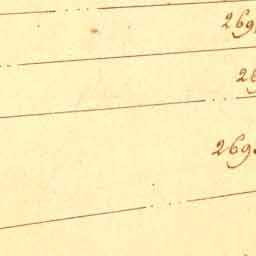 269
26
269